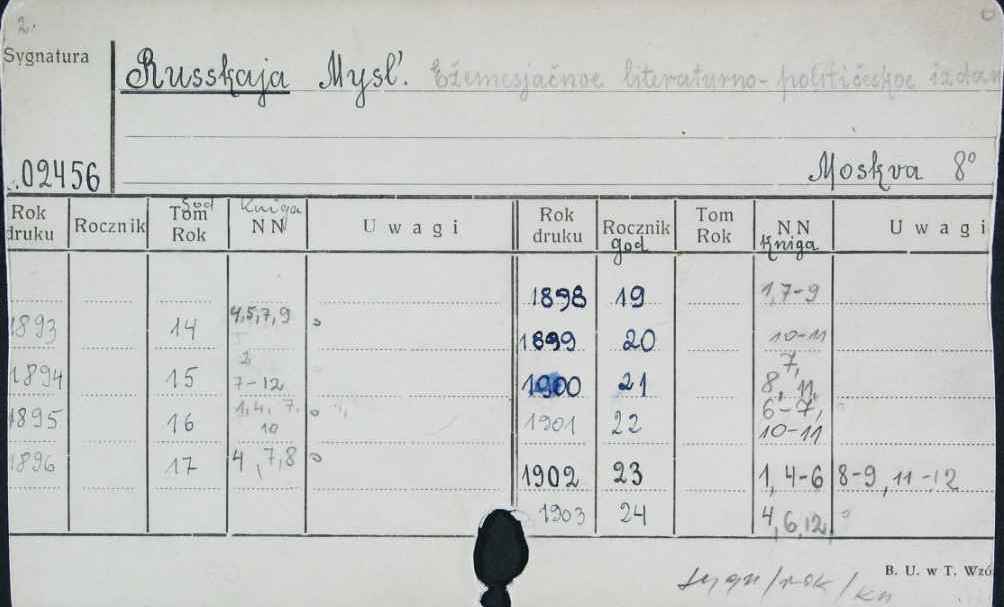 2.
Sygnatura
Russkaja Mysl'. Ežemesjačnoe literaturno-političeskoe izdan
02456
Moskva 8°
god Kniga
Rok druku Rocznik Tom Rok NN Uwagi Rok druku Rocznik Tom Rok NN Uwagi
god Kniga
1898 19 1,7-9
1893 14 4,5,7,9
1899 20 10-11
1894 15 2 7-12
1900 21 7, 8, 11,
1895 16 1,4, 7, 10
1901 22 6-7, 10-11
1896 17 4,7,8
1902 23 1, 4-6 8-9, 11-12
1903 24 4,6,12
B. U. w T. Wzó
sygn/rok/kn